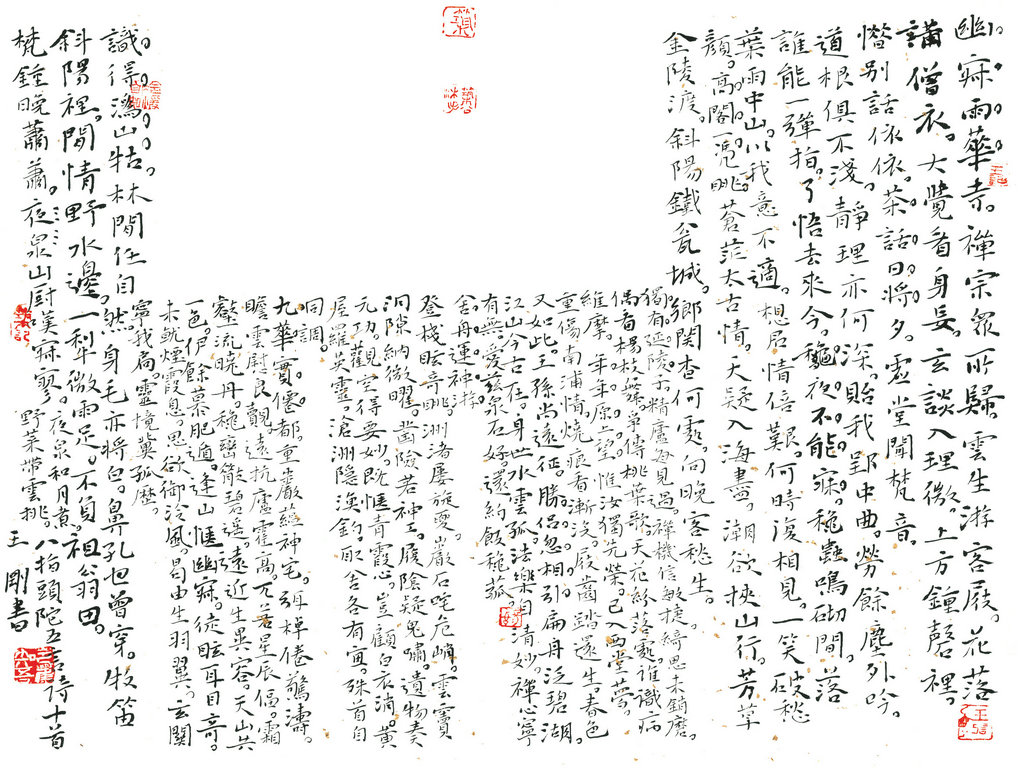 幽寂雨華寺。禪宗眾所歸。雲生游客屐。花落
講僧衣。大覺看身妄。玄談入理微。上方鐘磬裡。
惜別話依依。茶話日將夕。虛堂聞梵音。
道根俱不淺。靜理亦何深。貽我郢中曲。勞餘塵外吟。
誰能一彈指。了悟去來今。穐夜不能寐。穐蟲鳴砌間。落
葉雨中山。以我意不適。想君情倍艱。何時復相見。一笑破愁
顏。高閣一憑眺。蒼茫太古情。天疑入海盡。潮欲挾山行。芳草
金陵渡。斜陽鐵瓮城。鄉關杳何處。向晚客愁生。
獨有延陵子。精廬每見過。禪機信敏捷。綺思未銷磨。
偶看楊枝舞。爭傳桃葉歌。天花紛落處。誰識病
維摩。年年原上望。惟汝獨先榮。已入西堂夢。
重傷南浦情。燒痕看漸沒。屐齒踏還生。春色
又如此。王孫尚遠征。勝侶忽相引。扁舟泛碧湖。
江山今古在。身世水雲孤。法樂自清妙。禪心寧
有無。愛茲泉石好。還約飯穐菰。
舍舟運神游。
登棧眩奇眺。洲渚屢旋更。巖石咤危峭。雲竇
洞隙納微曜。凿險若神工。履陰疑鬼嘯。遺物奏
元功。觀空得要妙。既愜青霞心。豈顧白衣誚。黃
屋羅英靈。滄洲隱漁釣。取舍各有宜。殊首自
同調。
九華實僊都。重巖蘊神宅。弭棹倦驚濤。
瞻雲尉良覿。遠抗廬霍高。兀若星辰偪。霜
壑流曉丹。穐巒散碧遙。遠近生異容。天山共
一色。伊餘慕肥遁。逢山愜幽寂。徒眩耳目奇。
未就煙霞息。思欲御泠風。曷由生羽翼。玄關
寧我扃。靈境冀孤歷。
識得溈山牯。林間任自然。身毛亦將白。鼻孔也曾穿。牧笛
斜陽裡。閒情野水邊。一犁微雨足。不負祖翁田。
梵鐘晚蕭蕭。夜泉山廚漢寂寥。夜泉和月煮。野菜帶雲挑。八指頭陀五言詩十首
王剛書